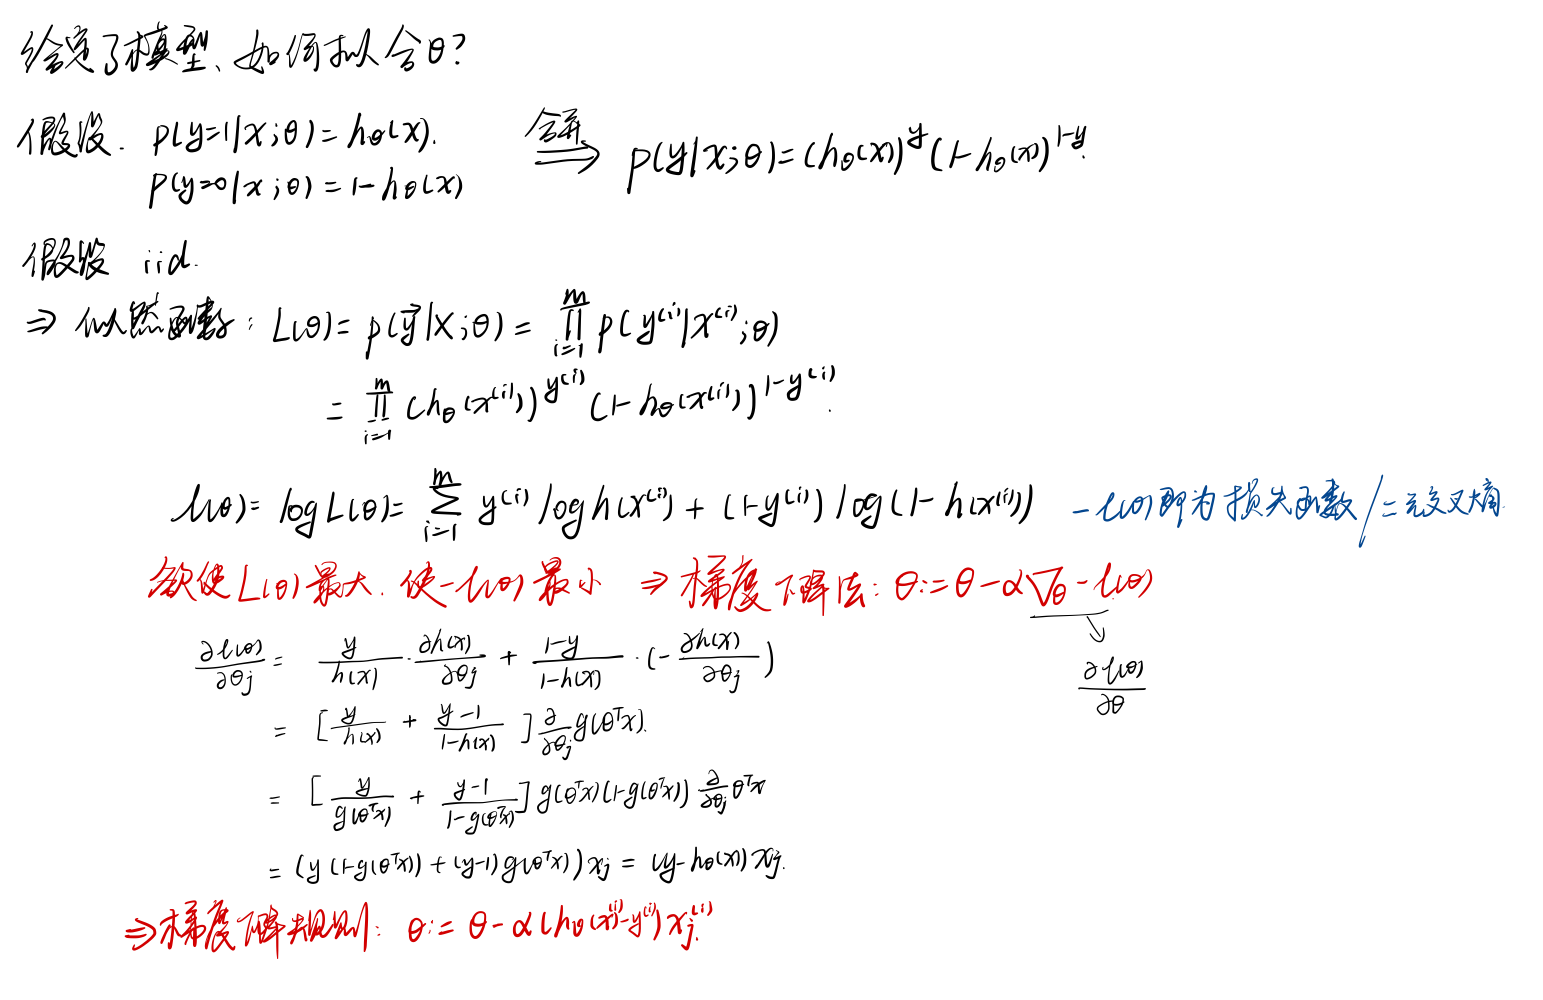 给定了模型、如何拟合θ?
假设. p(y=1|x;θ)=hθ(x). 合并⇒ p(y|x;θ)=(hθ(x))^y(1-hθ(x))^{1-y}.
p(y=0|x;θ)=1-hθ(x)
假设 iid.
⇒ 似然函数: L(θ)=p(y⃗|X;θ)=∏_{i=1}^{m} p(y^{(i)}|x^{(i)};θ)
=∏_{i=1}^{m} (hθ(x^{(i)}))^{y^{(i)}}(1-hθ(x^{(i)}))^{1-y^{(i)}}.
l(θ)=log L(θ)=∑_{i=1}^{m} y^{(i)} log h(x^{(i)}) + (1-y^{(i)}) log(1-h(x^{(i)})) -l(θ)即为损失函数/二元交叉熵
欲使L(θ)最大.使-l(θ)最小 ⇒ 梯度下降法: θ:=θ-α∇θ-l(θ)
∂l(θ)/∂θj = y/h(x)·∂h(x)/∂θj + (1-y)/(1-h(x))·(-∂h(x)/∂θj) ↘ ∂l(θ)/∂θ
= [y/h(x) + (y-1)/(1-h(x))] ∂/∂θj g(θᵀx).
= [y/g(θᵀx) + (y-1)/(1-g(θᵀx))] g(θᵀx)(1-g(θᵀx)) ∂/∂θj θᵀx
= (y(1-g(θᵀx))+(y-1)g(θᵀx))xj = (y-hθ(x))xj.
⇒梯度下降规则: θ:=θ-α(hθ(x^{(i)})-y^{(i)})xj^{(i)}.